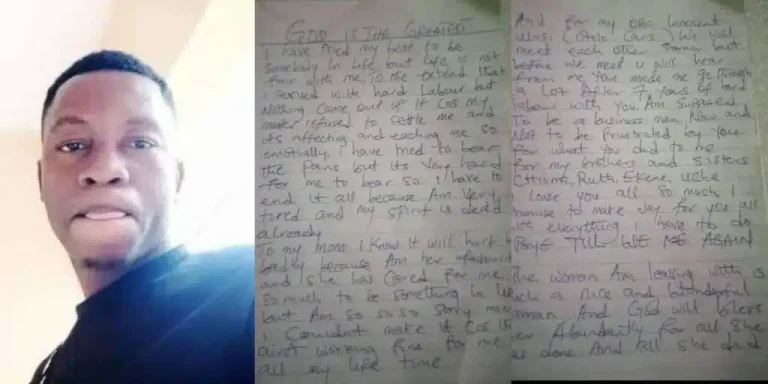 GOD IS THE GREATEST
I have tried my best to be
Somebody In life but life is not
fair with me, to the extend that
I served with hard Labour but
Nothing Came out of It Cos my
master refused to settle me and
its affecting and eaching me so
emotionally, I have tried to bear
the Pains but its Very hard
for me to bear so i have to
end it all because Am Very
tired and my spirit is dead
already
To my mom I Know it will hurt
badly because Am her favourite
and she has Cared for me
so much to be something in life
but Am so so so sorry mom
i Couldn't make it Cos life
ain't working fine for me
all my life time
And for my oga Innocent
(Otolo Cars) We will
meet each other Sorry but
before we meet u will hear
from me You made me go through
a Lot After 7 years of hard
labour with you Am Supposed
To be a business man Now and
Not to be frustrated by you
For what you did to me
for my brothers and Sisters
Ruth, Ekene, Uche
I love you all so much I
promise to make way for you all
everything i have to do
BOYE TILL WE ME AGAIN
The woman Am leaving with is
such a nice and Wonderful
woman And God will bless
her Abundantly for all She
has done And all she did